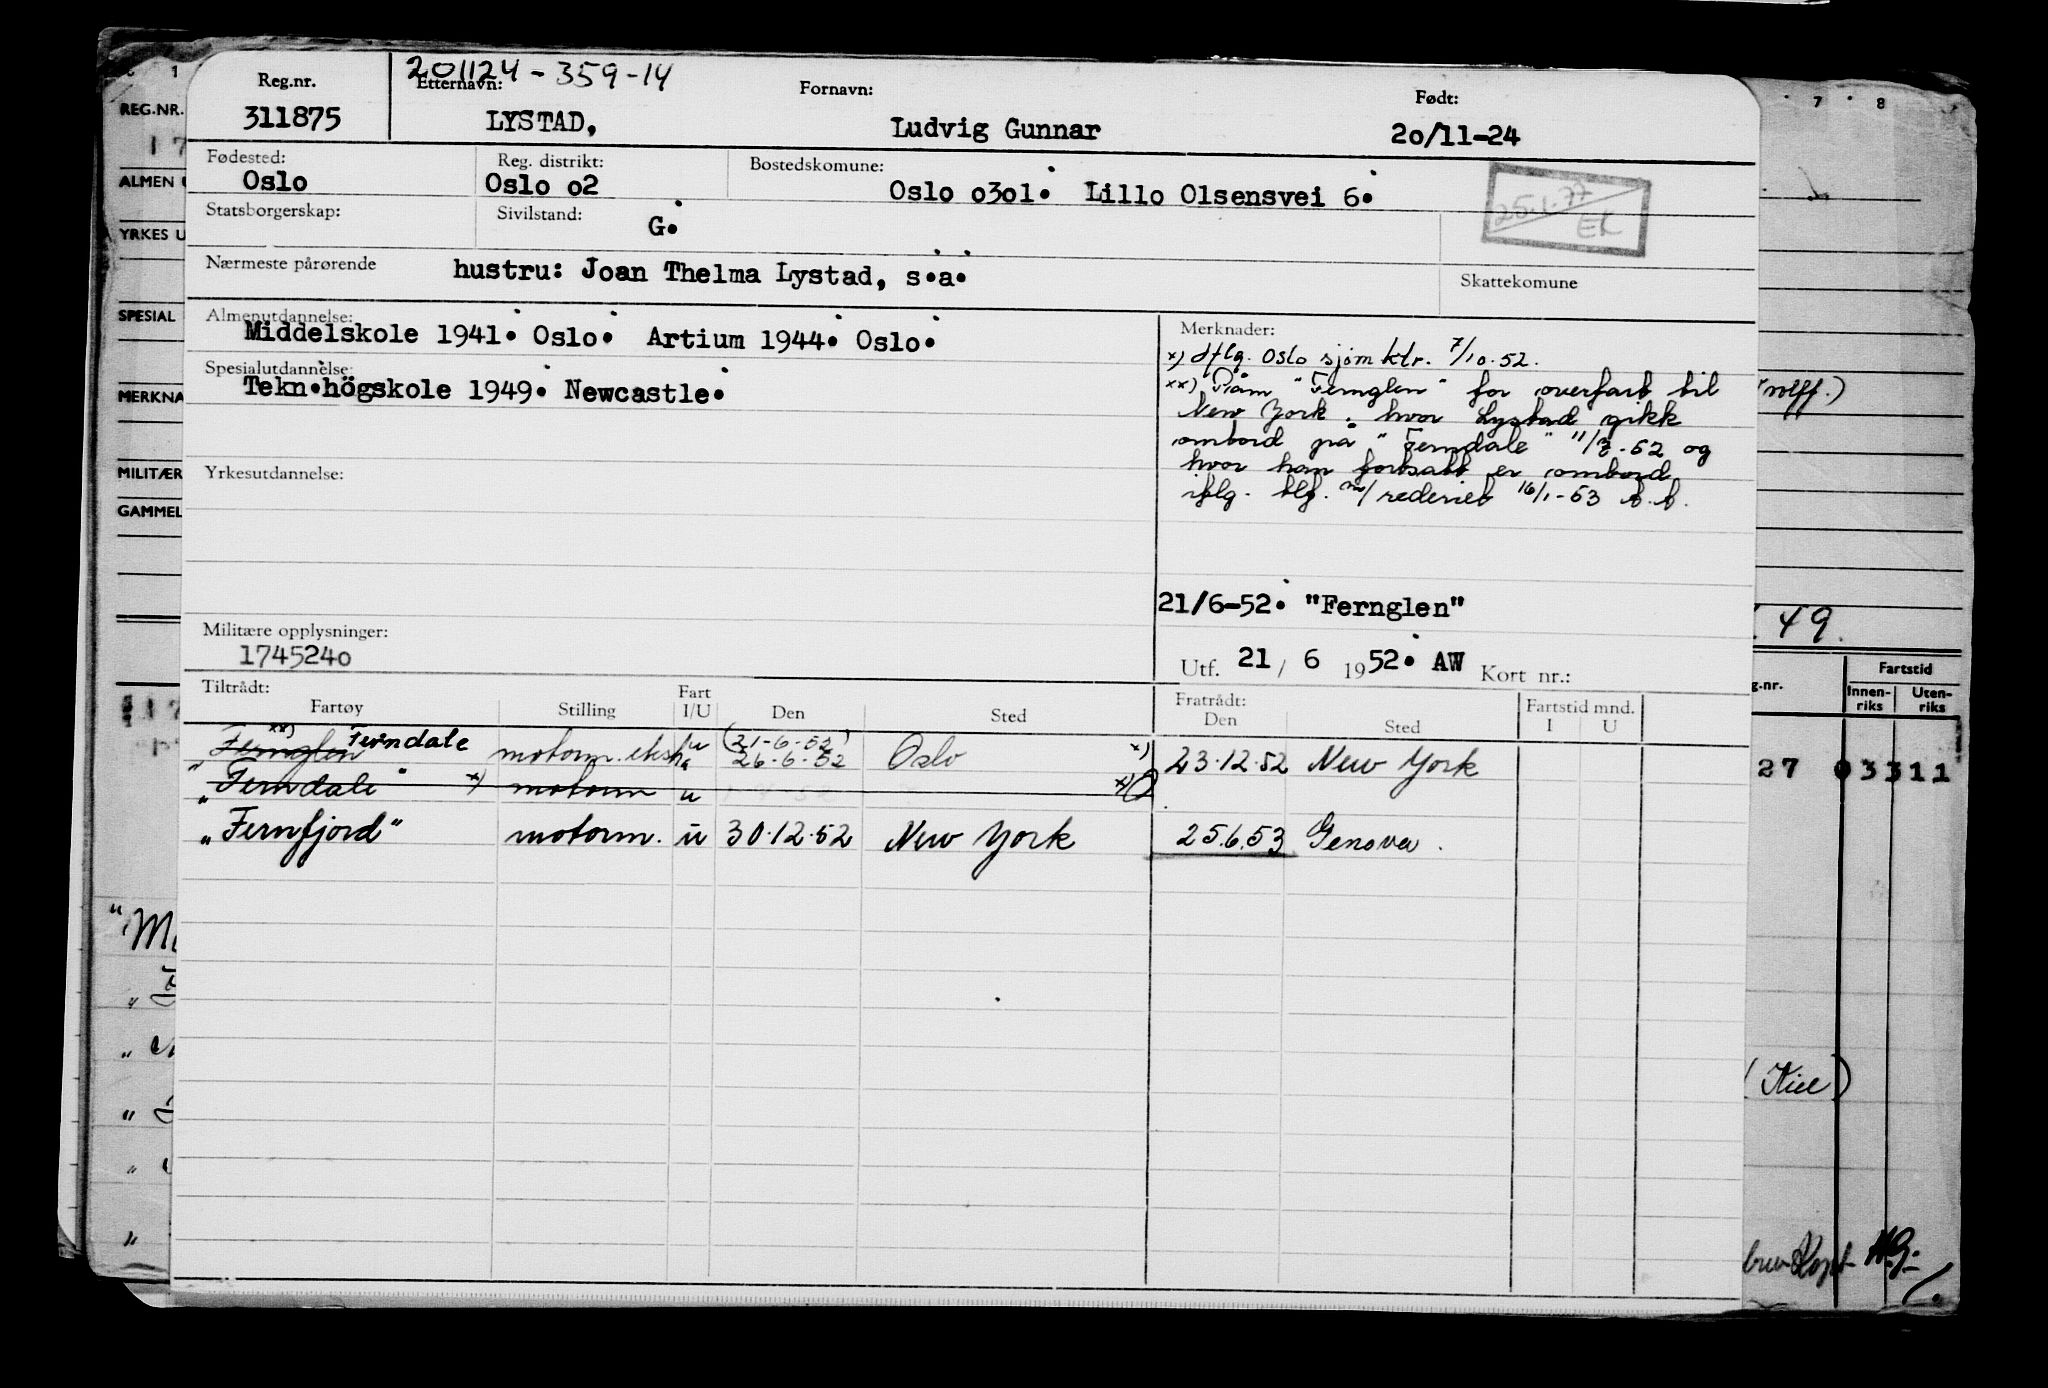 201124-359-14
Reg.nr. Etternavn: Fornavn: Født:
311875 LYSTAD, Ludvig Gunnar 20/11-24
Fødested: Reg. distrikt: Bostedskomune:
Oslo Oslo 02 Oslo 0301. Lillo Olsensvei 6.
Statsborgerskap: Sivilstand: G.
25.1.77
EK
Nærmeste pårørende hustru: Joan Thelma Lystad, s.a.
Skattekomune
Almenutdannelse:
Middelskole 1941. Oslo. Artium 1944. Oslo.
Spesialutdannelse:
Tekn.högskole 1949. Newcastle.
Yrkesutdannelse:
Merknader:
x) Iflg. Oslo sjøm ktr. 7/10.52.
xx) "Fernglen" for overfart til
New York, hvor Lystad gikk
ombord på "Ferndale" og
hvor han fortsatt er ombord
iflg. tlf. m/rederiet 16/1-53
21/6-52. "Fernglen"
Utf. 21 / 6 1952. AW Kort nr.:
Militære opplysninger:
1745240
Tiltrådt: Fratrådt:
Fartøy Stilling Fart I/U Den Sted Den Sted Fartstid mnd. I U
xx)
Fernglen Ferndale motorm. u (21-6-52)
26-6-52 Oslo x) 23.12.52 New York
"Ferndale" x) motorm u x)
"Fernfjord" motorm. u 30.12.52 New York 25.6.53 Genova.
REG.NR.
17
ALMEN
YRKES U
SPESIAL
MERKNA
MILITÆR
GAMMEL
7 8
49.
g.nr. Fartstid
Innen-riks Uten-riks
27 03311
(Kiel)